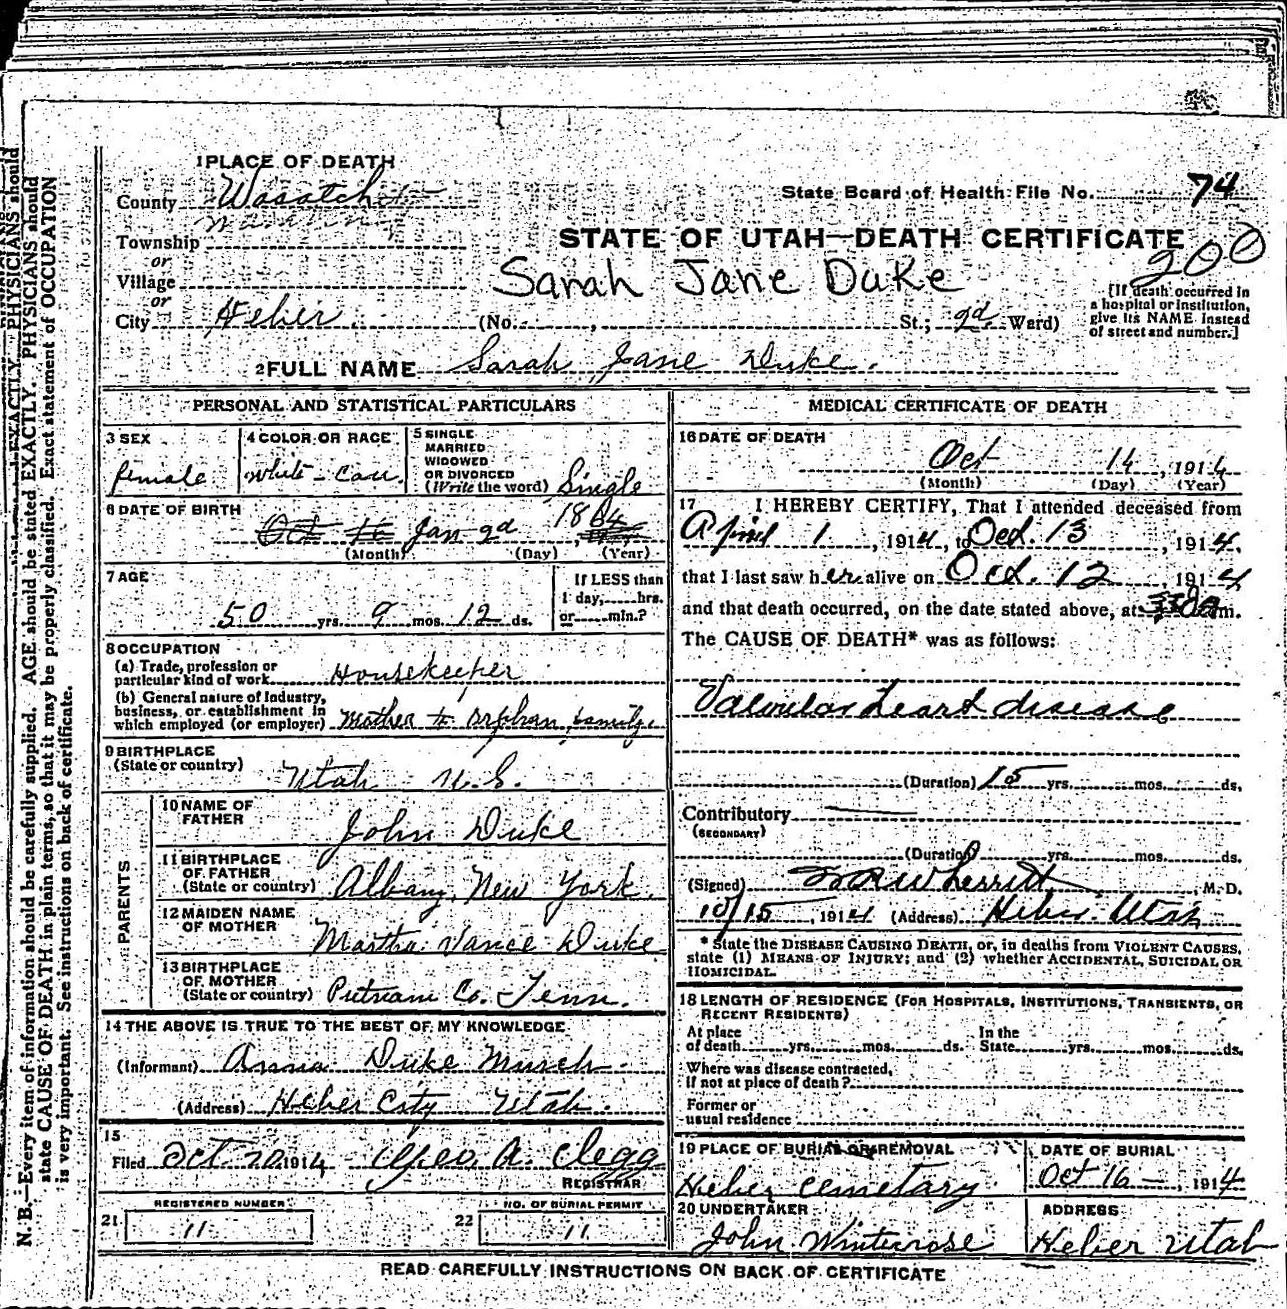 1 PLACE OF DEATH
County Wasatch
State Board of Health File No. 74
Township
STATE OF UTAH—DEATH CERTIFICATE
200
or
Village
Sarah Jane Duke
or
City Heber (No. , St.; 2d. Ward)
[If death occurred in a hospital or institution, give its NAME instead of street and number.]
2 FULL NAME Sarah Jane Duke.
PERSONAL AND STATISTICAL PARTICULARS
3 SEX
female
4 COLOR OR RACE
White - Cau.
5 SINGLE
MARRIED
WIDOWED
OR DIVORCED
(Write the word) Single
6 DATE OF BIRTH
Oct Jan 2d, 1864
(Month) (Day) (Year)
7 AGE
50 yrs. 9 mos. 12 ds.
If LESS than
1 day, hrs.
or min.?
8 OCCUPATION
(a) Trade, profession or
particular kind of work Housekeeper
(b) General nature of Industry,
business, or establishment in
which employed (or employer) Mother to orphan family.
9 BIRTHPLACE
(State or country)
Utah U.S.
PARENTS
10 NAME OF
FATHER
John Duke
11 BIRTHPLACE
OF FATHER
(State or country) Albany, New York.
12 MAIDEN NAME
OF MOTHER
Martha Vance Duke
13 BIRTHPLACE
OF MOTHER
(State or country) Putnam Co. Tenn.
14 THE ABOVE IS TRUE TO THE BEST OF MY KNOWLEDGE
(Informant) Anna Duke Murch.
(Address) Heber City Utah.
15
Filed Oct. 20 1914 Geo. A. Clegg
REGISTRAR
REGISTERED NUMBER
21 11
NO. OF BURIAL PERMIT
22 11
MEDICAL CERTIFICATE OF DEATH
16 DATE OF DEATH
Oct 14, 1914
(Month) (Day) (Year)
17 I HEREBY CERTIFY, That I attended deceased from
April 1, 1914, to Oct. 13, 1914,
that I last saw her alive on Oct. 12, 1914
and that death occurred, on the date stated above, at m.
The CAUSE OF DEATH* was as follows:
Valvular heart disease
(Duration) 15 yrs. mos. ds.
Contributory
(SECONDARY)
(Duration) yrs. mos. ds.
(Signed) Wherritt, M. D.
10/15, 1914 (Address) Heber Utah
* State the DISEASE CAUSING DEATH, or, in deaths from VIOLENT CAUSES,
state (1) MEANS OF INJURY; and (2) whether ACCIDENTAL, SUICIDAL OR
HOMICIDAL.
18 LENGTH OF RESIDENCE (FOR HOSPITALS, INSTITUTIONS, TRANSIENTS, OR
RECENT RESIDENTS)
At place
of death yrs. mos. ds.
In the
State yrs. mos. ds.
Where was disease contracted,
if not at place of death?
Former or
usual residence
19 PLACE OF BURIAL OR REMOVAL
Heber Cemetary
DATE OF BURIAL
Oct 16, 1914
20 UNDERTAKER
John Winterose
ADDRESS
Heber Utah
READ CAREFULLY INSTRUCTIONS ON BACK OF CERTIFICATE
N. B.—Every item of information should be carefully supplied. AGE should be stated EXACTLY. PHYSICIANS should
state CAUSE OF DEATH in plain terms, so that it may be properly classified. Exact statement of OCCUPATION
is very important. See instructions on back of certificate.
EXACTLY. PHYSICIANS should